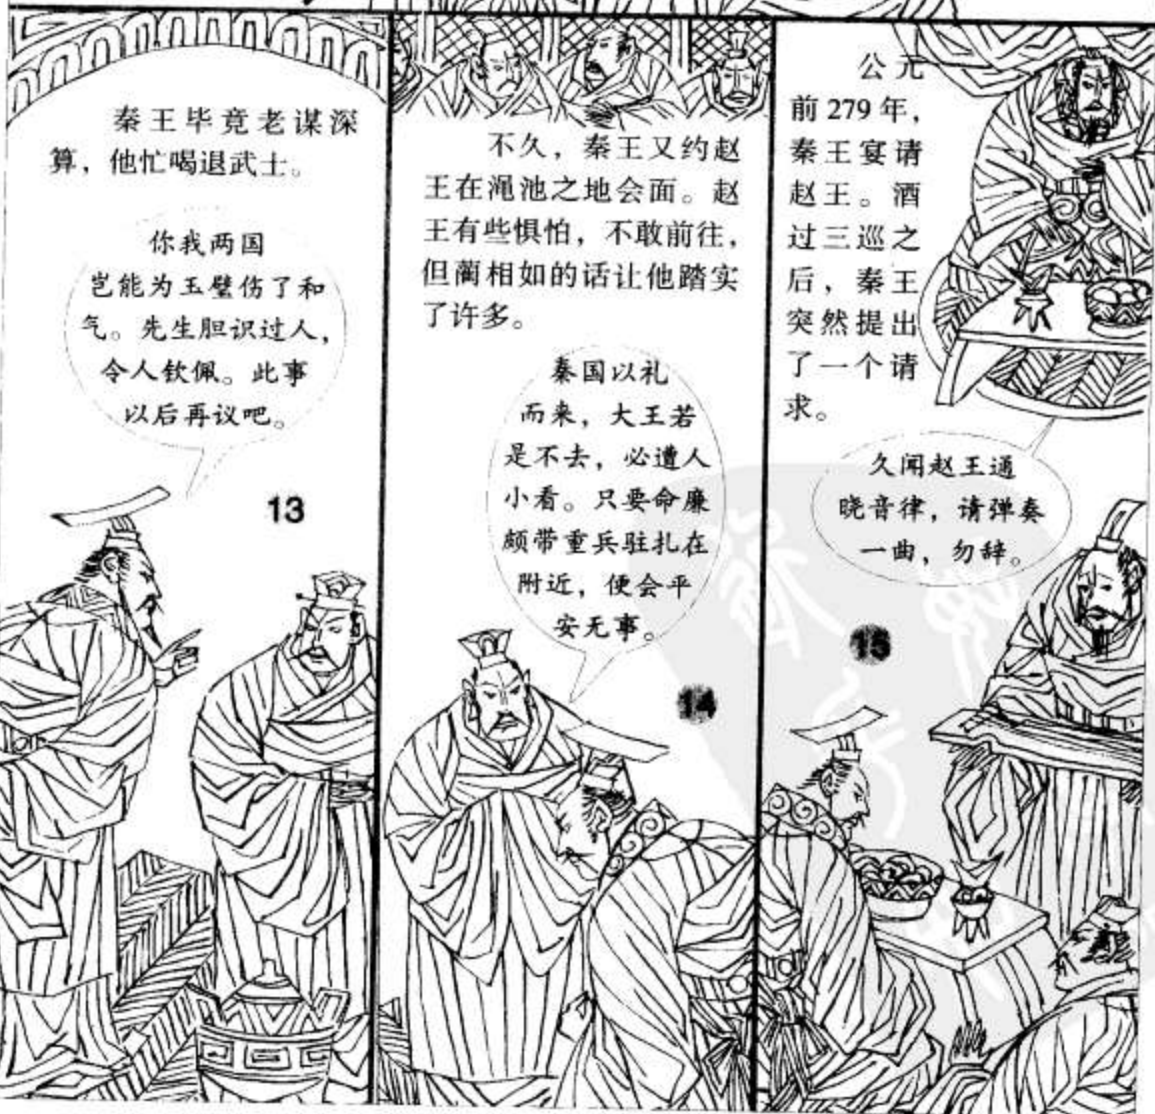 秦王毕竟老谋深
算，他忙喝退武士。
你我两国
岂能为玉璧伤了和
气。先生胆识过人，
令人钦佩。此事
以后再议吧。
13
不久，秦王又约赵
王在渑池之地会面。赵
王有些惧怕，不敢前往，
但蔺相如的话让他踏实
了许多。
秦国以礼
而来，大王若
是不去，必遭人
小看。只要命廉
颇带重兵驻扎在
附近，便会平
安无事。
14
公元
前279年，
秦王宴请
赵王。酒
过三巡之
后，秦王
突然提出
了一个请
求。
久闻赵王通
晓音律，请弹奏
一曲，勿辞。
15